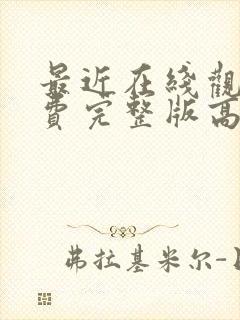 最近在綫觀
費完整版高
弗拉基米尔-